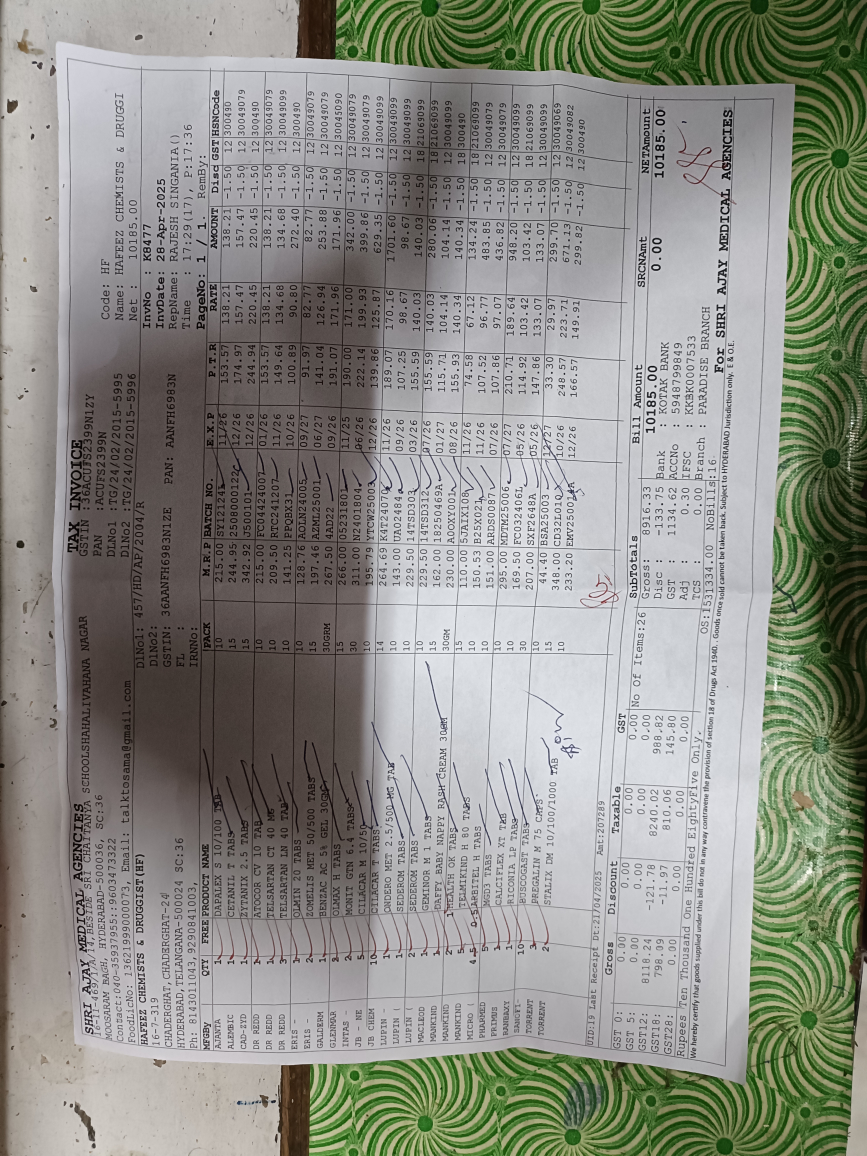 TAX INVOICE
SHRI AJAY MEDICAL AGENCIES
16-11-469/1/A/14, BESIDE SRI CHAITANYA SCHOOLSHAHALIVAHANA NAGAR
MOOSARAM BAGH, HYDERABAD-500036, SC:36
Contact:040-35937955::9603473322
FoodLicNo: 13621999000073, Email: talktosama@gmail.com
GSTIN :36ACUFS2399N1ZY
PAN :ACUFS2399N
DLNo1 :TG/24/02/2015-5995
DLNo2 :TG/24/02/2015-5996
Code: HF
Name: HAFEEZ CHEMISTS & DRUGGI
Net : 10185.00
HAFEEZ CHEMISTS & DRUGGIST(HF)
16-7-339
CHADERGHAT, CHADERGHAT-24
HYDERABAD,TELANGANA-500024 SC:36
Ph: 8143011043,9290841003,
DlNo1: 457/HD/AP/2004/R
DlNo2:
GSTIN: 36AANFH6983N1ZE PAN: AANFH6983N
FL :
IRNNo:
InvNo : K8477
InvDate: 28-Apr-2025
RepName: RAJESH SINGANIA()
Time : 17:29(17), P:17:36
PageNo: 1 / 1. RenBy:
MFGBy QTY FREE PRODUCT NAME PACK M.R.P BATCH NO. E.X.P P.T.R RATE AMOUNT Disc GST HSNCode
AJANTA 1 DAPALEX S 10/100 TAB 10 215.00 SY121241 11/26 153.57 138.21 138.21 -1.50 12 300490
ALEMBIC 1 CETANIL T TABS 15 244.95 25080001222 12/26 174.97 157.47 157.47 -1.50 12 30049079
CAD-ZYD 1 ZYTANIX 2.5 TABS 15 342.92 J500101 12/26 244.94 220.45 220.45 -1.50 12 300490
DR REDD 1 ATOCOR CV 10 TAB 10 215.00 FC04424007 01/26 153.57 138.21 138.21 -1.50 12 30049079
DR REDD 1 TELSARTAN CT 40 MG 10 209.50 RTC241207 11/26 149.64 134.68 134.68 -1.50 12 30049099
DR REDD 3 TELSARTAN LN 40 TAB 10 141.25 PPQBX31 10/26 100.89 90.80 272.40 -1.50 12 300490
ERIS - 1 OLMIN 20 TABS 10 128.76 AOLN24005 09/27 91.97 82.77 82.77 -1.50 12 30049079
ERIS 2 ZOMELIS MET 50/500 TABS 15 197.46 AZML25001 06/27 141.04 126.94 253.88 -1.50 12 30049079
GALDERM 1 BENZAC AC 5% GEL 30GM 30GRM 267.50 4AD22 09/26 191.07 171.96 171.96 -1.50 12 30045090
GLENMAR 2 H TABS 15 266.00 05231801 11/25 190.00 171.00 342.00 -1.50 12 30049079
INTAS - 2 MONIT GTN 6.4 TABS 30 311.00 N2401804 06/26 222.14 199.93 399.86 -1.50 12 30049099
JB - NE 5 CILACAR M 10/50 10 195.79 YTCW25003 12/26 139.86 125.87 629.35 -1.50 12 30049099
JB CHEM 10 CILACAR T TABS 14 264.69 K4T24070 11/26 189.07 170.16 1701.60 -1.50 12 30049099
LUPIN - 1 ONDERO MET 2.5/500 MG TAB 10 143.00 UA02484 09/26 107.25 98.67 98.67 -1.50 12 30049099
LUPIN ( 1 SEDEROM TABS 10 229.50 14TSD303 03/26 155.59 140.03 140.03 -1.50 18 21069099
LUPIN ( 2 SEDEROM TABS 10 229.50 14TSD312 07/26 155.59 140.03 280.06 -1.50 18 21069099
MACLEOD 1 GEMINOR M 1 TABS 15 162.00 18250469A 01/27 115.71 104.14 104.14 -1.50 12 30049099
MANKIND 1 DAFFY BABY NAPPY RASH CREAM 30GM 30GM 230.00 A0OXY001 08/26 155.93 140.34 140.34 -1.50 18 300490
MANKIND 2 HEALTH OK TABS 15 110.00 5JAIX108 11/26 74.58 67.12 134.24 -1.50 18 21069099
MANKIND 5 TELMIKIND H 80 TABS 10 150.53 B25X021 11/26 107.52 96.77 483.85 -1.50 12 30049079
MICRO ( 4.5 0.5 ARBITEL H TABS 10 151.00 ARDS0087 07/26 107.86 97.07 436.82 -1.50 12 30049079
PHARMED 5 MGD3 TABS 10 295.00 MDTM25006 07/27 210.71 189.64 948.20 -1.50 12 30049099
PRIMUS 1 CALCIFLEX XT TAB 10 169.50 FC032406L 05/26 114.92 103.42 103.42 -1.50 18 21069099
RANBAXY 1 RICONIA LP TABS 30 207.00 SXF2648A 05/26 147.86 133.07 133.07 -1.50 12 30049099
SANOFI 10 BUSCOGAST TABS 10 44.40 BSA25003 12/27 33.30 29.97 299.70 -1.50 12 30049069
TORRENT 3 PREGALIN M 75 CAPS 15 348.00 CD32L010 10/26 248.57 223.71 671.13 -1.50 12 30049082
TORRENT 2 STALIX DM 10/100/1000 TAB 10 233.20 12/26 166.57 149.91 299.82 -1.50 12 300490
UID:19 Last Receipt Dt:21/04/2025 Amt:207289
Gross Discount Taxable GST
GST 0: 0.00 0.00 0.00 0.00
GST 5: 0.00 0.00 0.00 0.00
GST12: 8118.24 -121.78 8240.02 988.82
GST18: 798.09 -11.97 810.06 145.80
GST28: 0.00 0.00 0.00 0.00
No Of Items:26
SubTotals
Gross: 8916.33
Disc : -133.75
GST : 1134.62
Adj : 0.30
TCS : 0.00
Bill Amount
10185.00
SRCNAmt
0.00
NETAmount
10185.00
Bank : KOTAK BANK
ACCNo : 5948799849
IFSC : KKBK0007533
Branch : PARADISE BRANCH
Rupees Ten Thousand One Hundred EightyFive Only.
OS:1531334.00 NoBills:16
We hereby certify that goods supplied under this bill do not in any way contravene the provision of section 18 of Drugs Act 1940. . Goods once sold cannot be taken back. Subject to HYDERABAD Jurisdiction only. E & O.E.
For SHRI AJAY MEDICAL AGENCIES